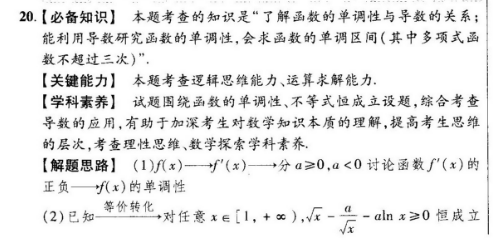 20.【必备知识】 本题考查的知识是“了解函数的单调性与导数的关系;
能利用导数研究函数的单调性,会求函数的单调区间(其中多项式函
数不超过三次)”.
【关键能力】 本题考查逻辑思维能力、运算求解能力.
【学科素养】 试题围绕函数的单调性、不等式恒成立设题,综合考查
导数的应用,有助于加深考生对数学知识本质的理解,提高考生思维
的层次,考查理性思维、数学探索学科素养.
【解题思路】 (1)f(x)⟶f′(x)⟶分 a≥0,a<0 讨论函数 f′(x) 的
正负⟶f(x) 的单调性
(2)已知 等价转化⟶ 对任意 x∈[1,+∞),√x - a/√x - aln x≥0 恒成立